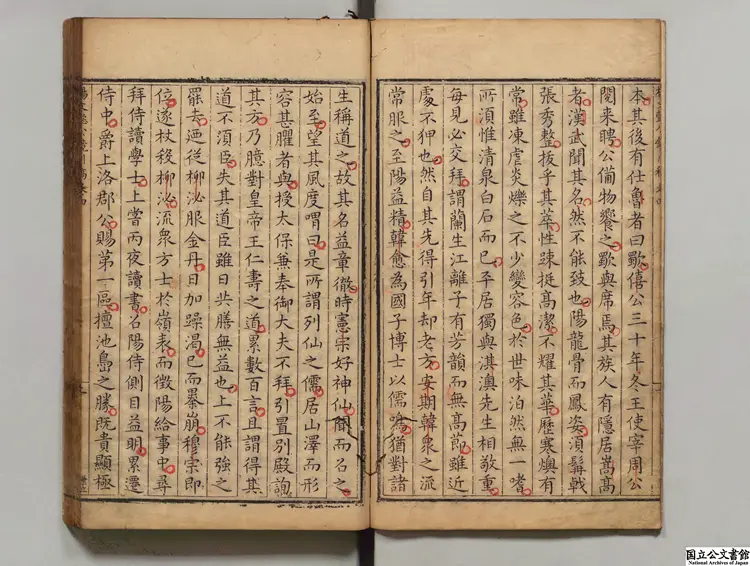 本其後有仕魯者曰歜僖公三十年冬王使宰周公
閱來聘公備物饗之歜與席焉其族人有隱居嵩高
者漢武聞其名然不能致也陽龍骨而鳳姿須髯戟
張秀整拔乎其萃性踈挺高潔不耀其華歷寒燠有
常雖凍虐炎爍之不少變容色於世味泊然無一嗜
所須惟清泉白石而已平居獨與淇澳先生相敬重
每見必交拜謂蘭生江離子有芳韻而無高節雖近
處不狎也然自其先得引年却老方安期韓衆之流
常服之至陽益精韓愈為國子博士以儒鳴猶對諸
生稱道之故其名益章徹時憲宗好神仙聞而召之
始至望其風度喟曰是所謂列仙之儒居山澤而形
容甚臞者與授太保無奉御大夫不拜引置別殿詢
其方乃臆對皇帝王仁壽之道累數百言且謂得其
道不須臣失其道臣雖日共膳無益也上不能強之
罷去迺從柳泌服金丹日加躁渴已而暴崩穆宗即
位遂杖殺柳泌流衆方士於嶺表而徵陽給事中尋
拜侍讀學士上嘗丙夜讀書召陽侍側目益明累遷
侍中爵上洛郡公賜第一區擅池島之勝既貴顯極
国立公文書館
National Archives of Japan